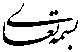 بسمه تعالی